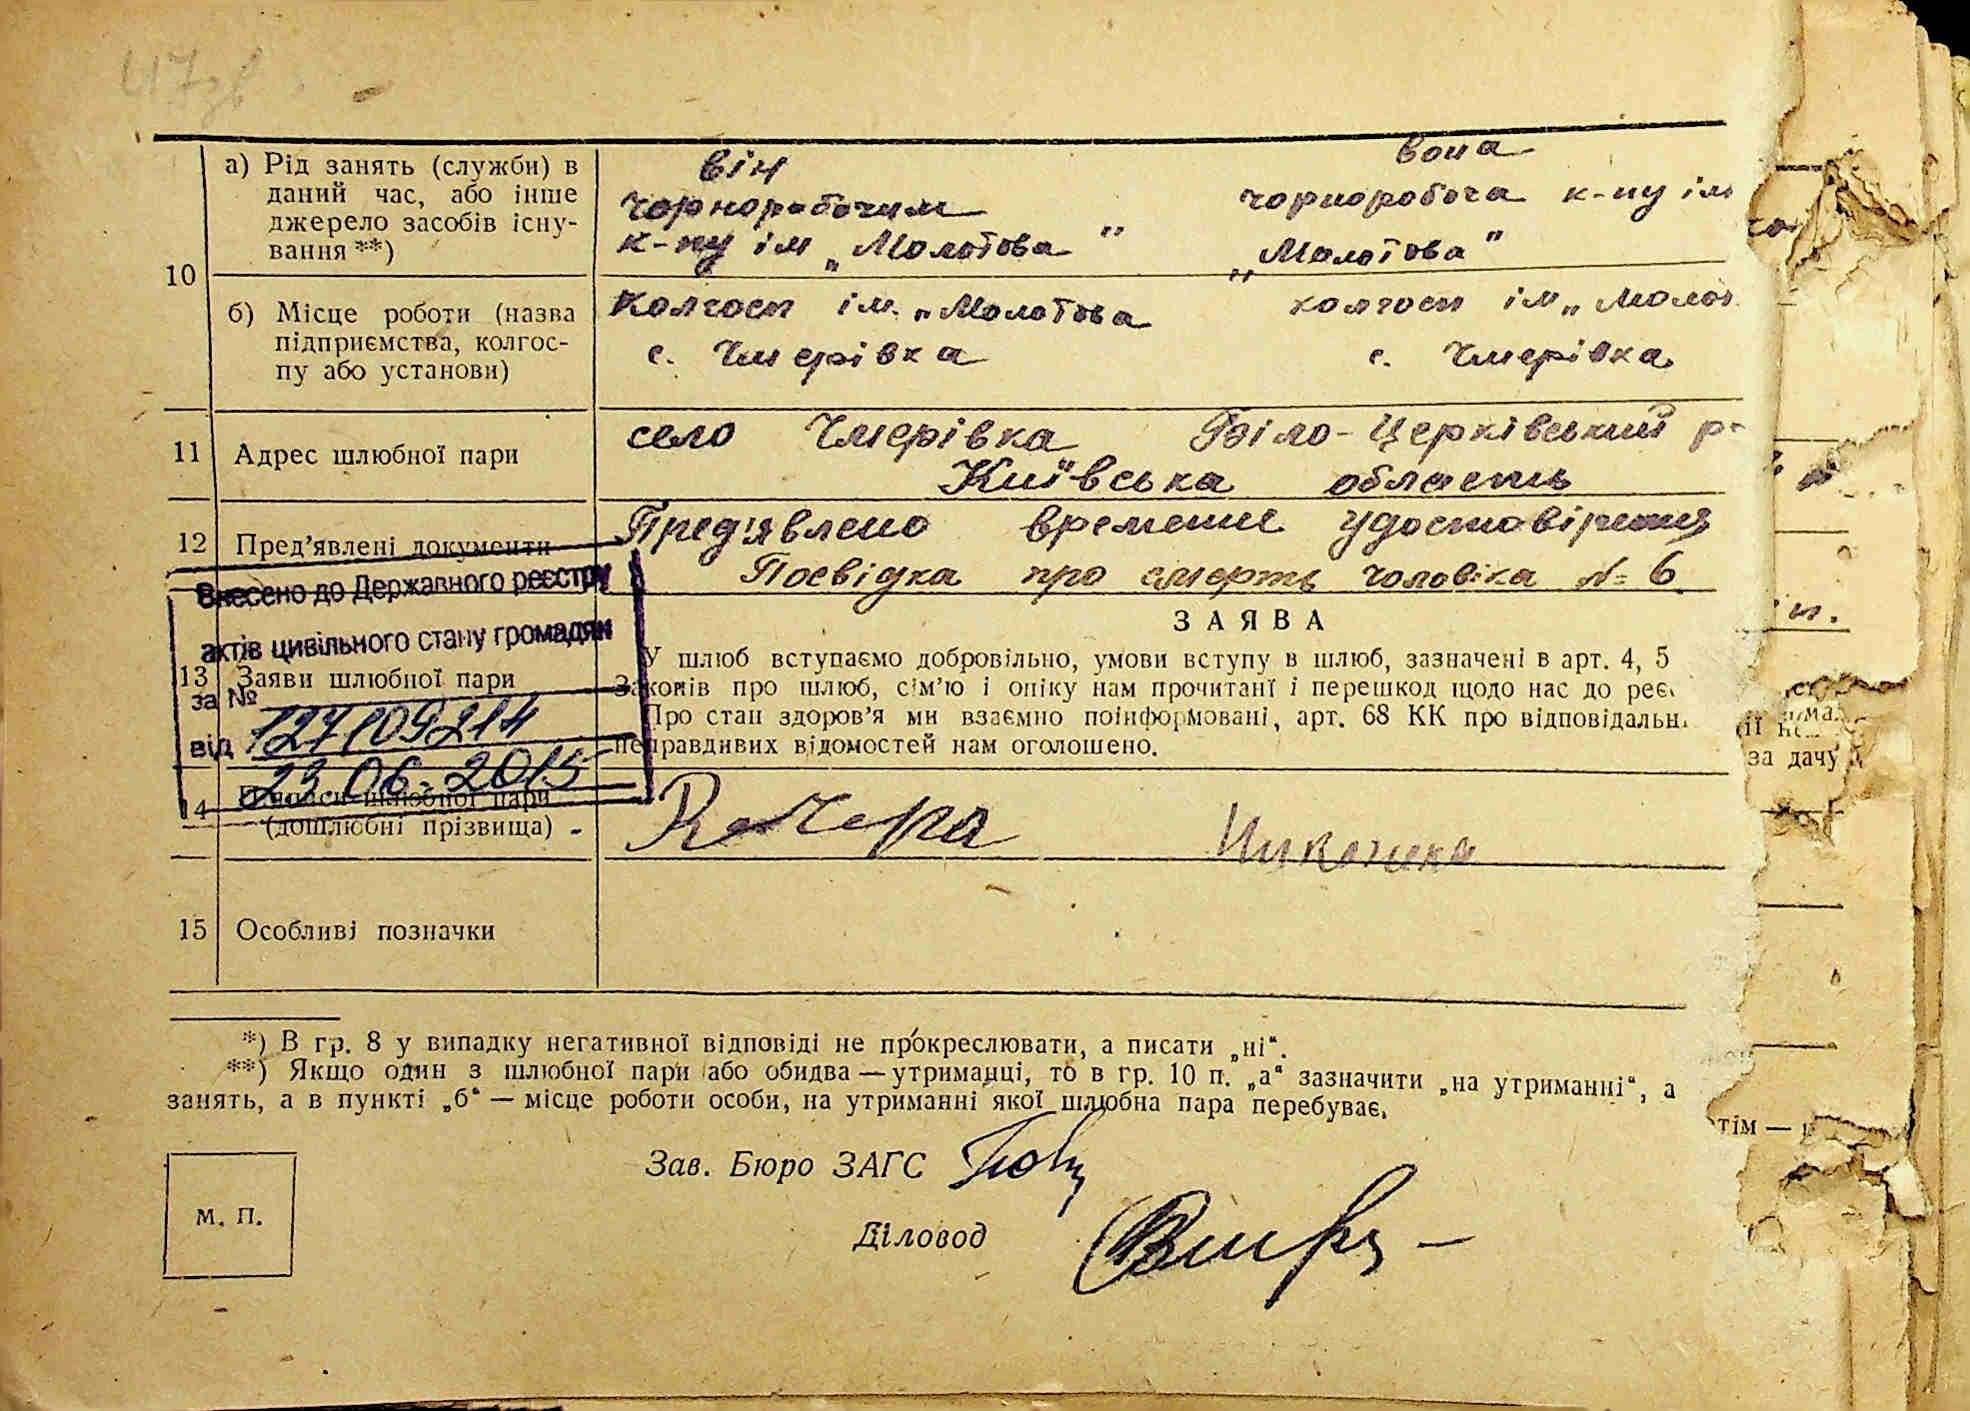 47зв
він вона
10
а) Рід занять (служби) в даний час, або інше джерело засобів існування **)
чорноробочим
к-пу ім „Молотова"
чорноробоча к-пу ім
„Молотова"
б) Місце роботи (назва підприємства, колгоспу або установи)
Колгосп ім. „Молотова
с. Чмерівка
колгосп ім „Молот
с. Чмерівка
11 Адрес шлюбної пари
село Чмерівка Біло-Церківський р-
Київська область
12 Пред'явлені документи
Пред'явлено времені удостовірения
Посвідка про смерть чоловіка № 6
Внесено до Державного реєстру
актів цивільного стану громадян
за № 127109214
від 23.06.2015
13 Заяви шлюбної пари
ЗАЯВА
У шлюб вступаємо добровільно, умови вступу в шлюб, зазначені в арт. 4, 5
Законів про шлюб, сім'ю і опіку нам прочитані і перешкод щодо нас до реє
Про стан здоров'я ми взаємно поінформовані, арт. 68 КК про відповідальн
неправдивих відомостей нам оголошено.
за дачу
14 Підписи шлюбної пари
(дошлюбні прізвища)
15 Особливі позначки
*) В гр. 8 у випадку негативної відповіді не прокреслювати, а писати „ні".
**) Якщо один з шлюбної пари або обидва — утриманці, то в гр. 10 п. „а" зазначити „на утриманні", а
занять, а в пункті „б" — місце роботи особи, на утриманні якої шлюбна пара перебуває.
тім —
Зав. Бюро ЗАГС
М. П.
Діловод